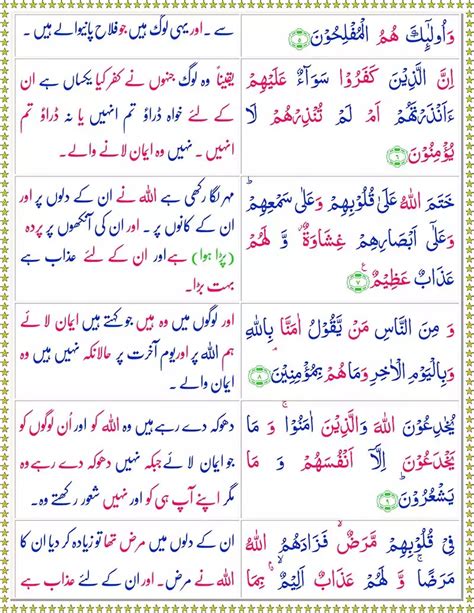 وَاُولٰٓئِكَ هُمُ الْمُفْلِحُوْنَ ۝٥
سے ۔ اور یہی لوگ ہیں جو فلاح پانیوالے ہیں ۔
اِنَّ الَّذِيْنَ كَفَرُوْا سَوَآءٌ عَلَيْهِمْ
ءَاَنْذَرْتَهُمْ اَمْ لَمْ تُنْذِرْهُمْ لَا
يُؤْمِنُوْنَ ۝٦
یقیناً وہ لوگ جنہوں نے کفر کیا یکساں ہے ان
کے لئے خواہ ڈراؤ تم انہیں یا نہ ڈراؤ تم
انہیں ۔ نہیں وہ ایمان لانے والے۔
خَتَمَ اللّٰهُ عَلٰى قُلُوْبِهِمْ وَعَلٰى سَمْعِهِمْ ؕ
وَعَلٰٓى اَبْصَارِهِمْ غِشَاوَةٌ ز وَّ لَهُمْ
عَذَابٌ عَظِيْمٌ ۝٧
مہر لگا رکھی ہے اللہ نے ان کے دلوں پر اور
ان کے کانوں پر ۔ اور ان کی آنکھوں پر پردہ
(پڑا ہوا) ہے اور ان کے لئے عذاب ہے
بہت بڑا۔
وَ مِنَ النَّاسِ مَنْ يَّقُوْلُ اٰمَنَّا بِاللّٰهِ
وَبِالْيَوْمِ الْاٰخِرِ وَمَا هُمْ بِمُؤْمِنِيْنَ ۝٨
اور لوگوں میں وہ ہیں جو کہتے ہیں ایمان لائے
ہم اللہ پر اور یوم آخرت پر حالانکہ نہیں ہیں وہ
ایمان والے ۔
يُخٰدِعُوْنَ اللّٰهَ وَالَّذِيْنَ اٰمَنُوْا ۚ وَ مَا
يَخْدَعُوْنَ اِلَّآ اَنْفُسَهُمْ وَ مَا
يَشْعُرُوْنَ ۝٩
دھوکہ دے رہے ہیں وہ اللہ کو اور اُن لوگوں کو
جو ایمان لائے جبکہ نہیں دھوکہ دے رہے وہ
مگر اپنے آپ ہی کو اور نہیں شعور رکھتے وہ۔
فِيْ قُلُوْبِهِمْ مَّرَضٌ ۙ فَزَادَهُمُ اللّٰهُ
مَرَضًا ۚ وَ لَهُمْ عَذَابٌ اَلِيْمٌ ۙ بِمَا
ان کے دلوں میں مرض تھا تو زیادہ کر دیا ان
کا اللہ نے مرض ۔ اور ان کے لئے عذاب ہے